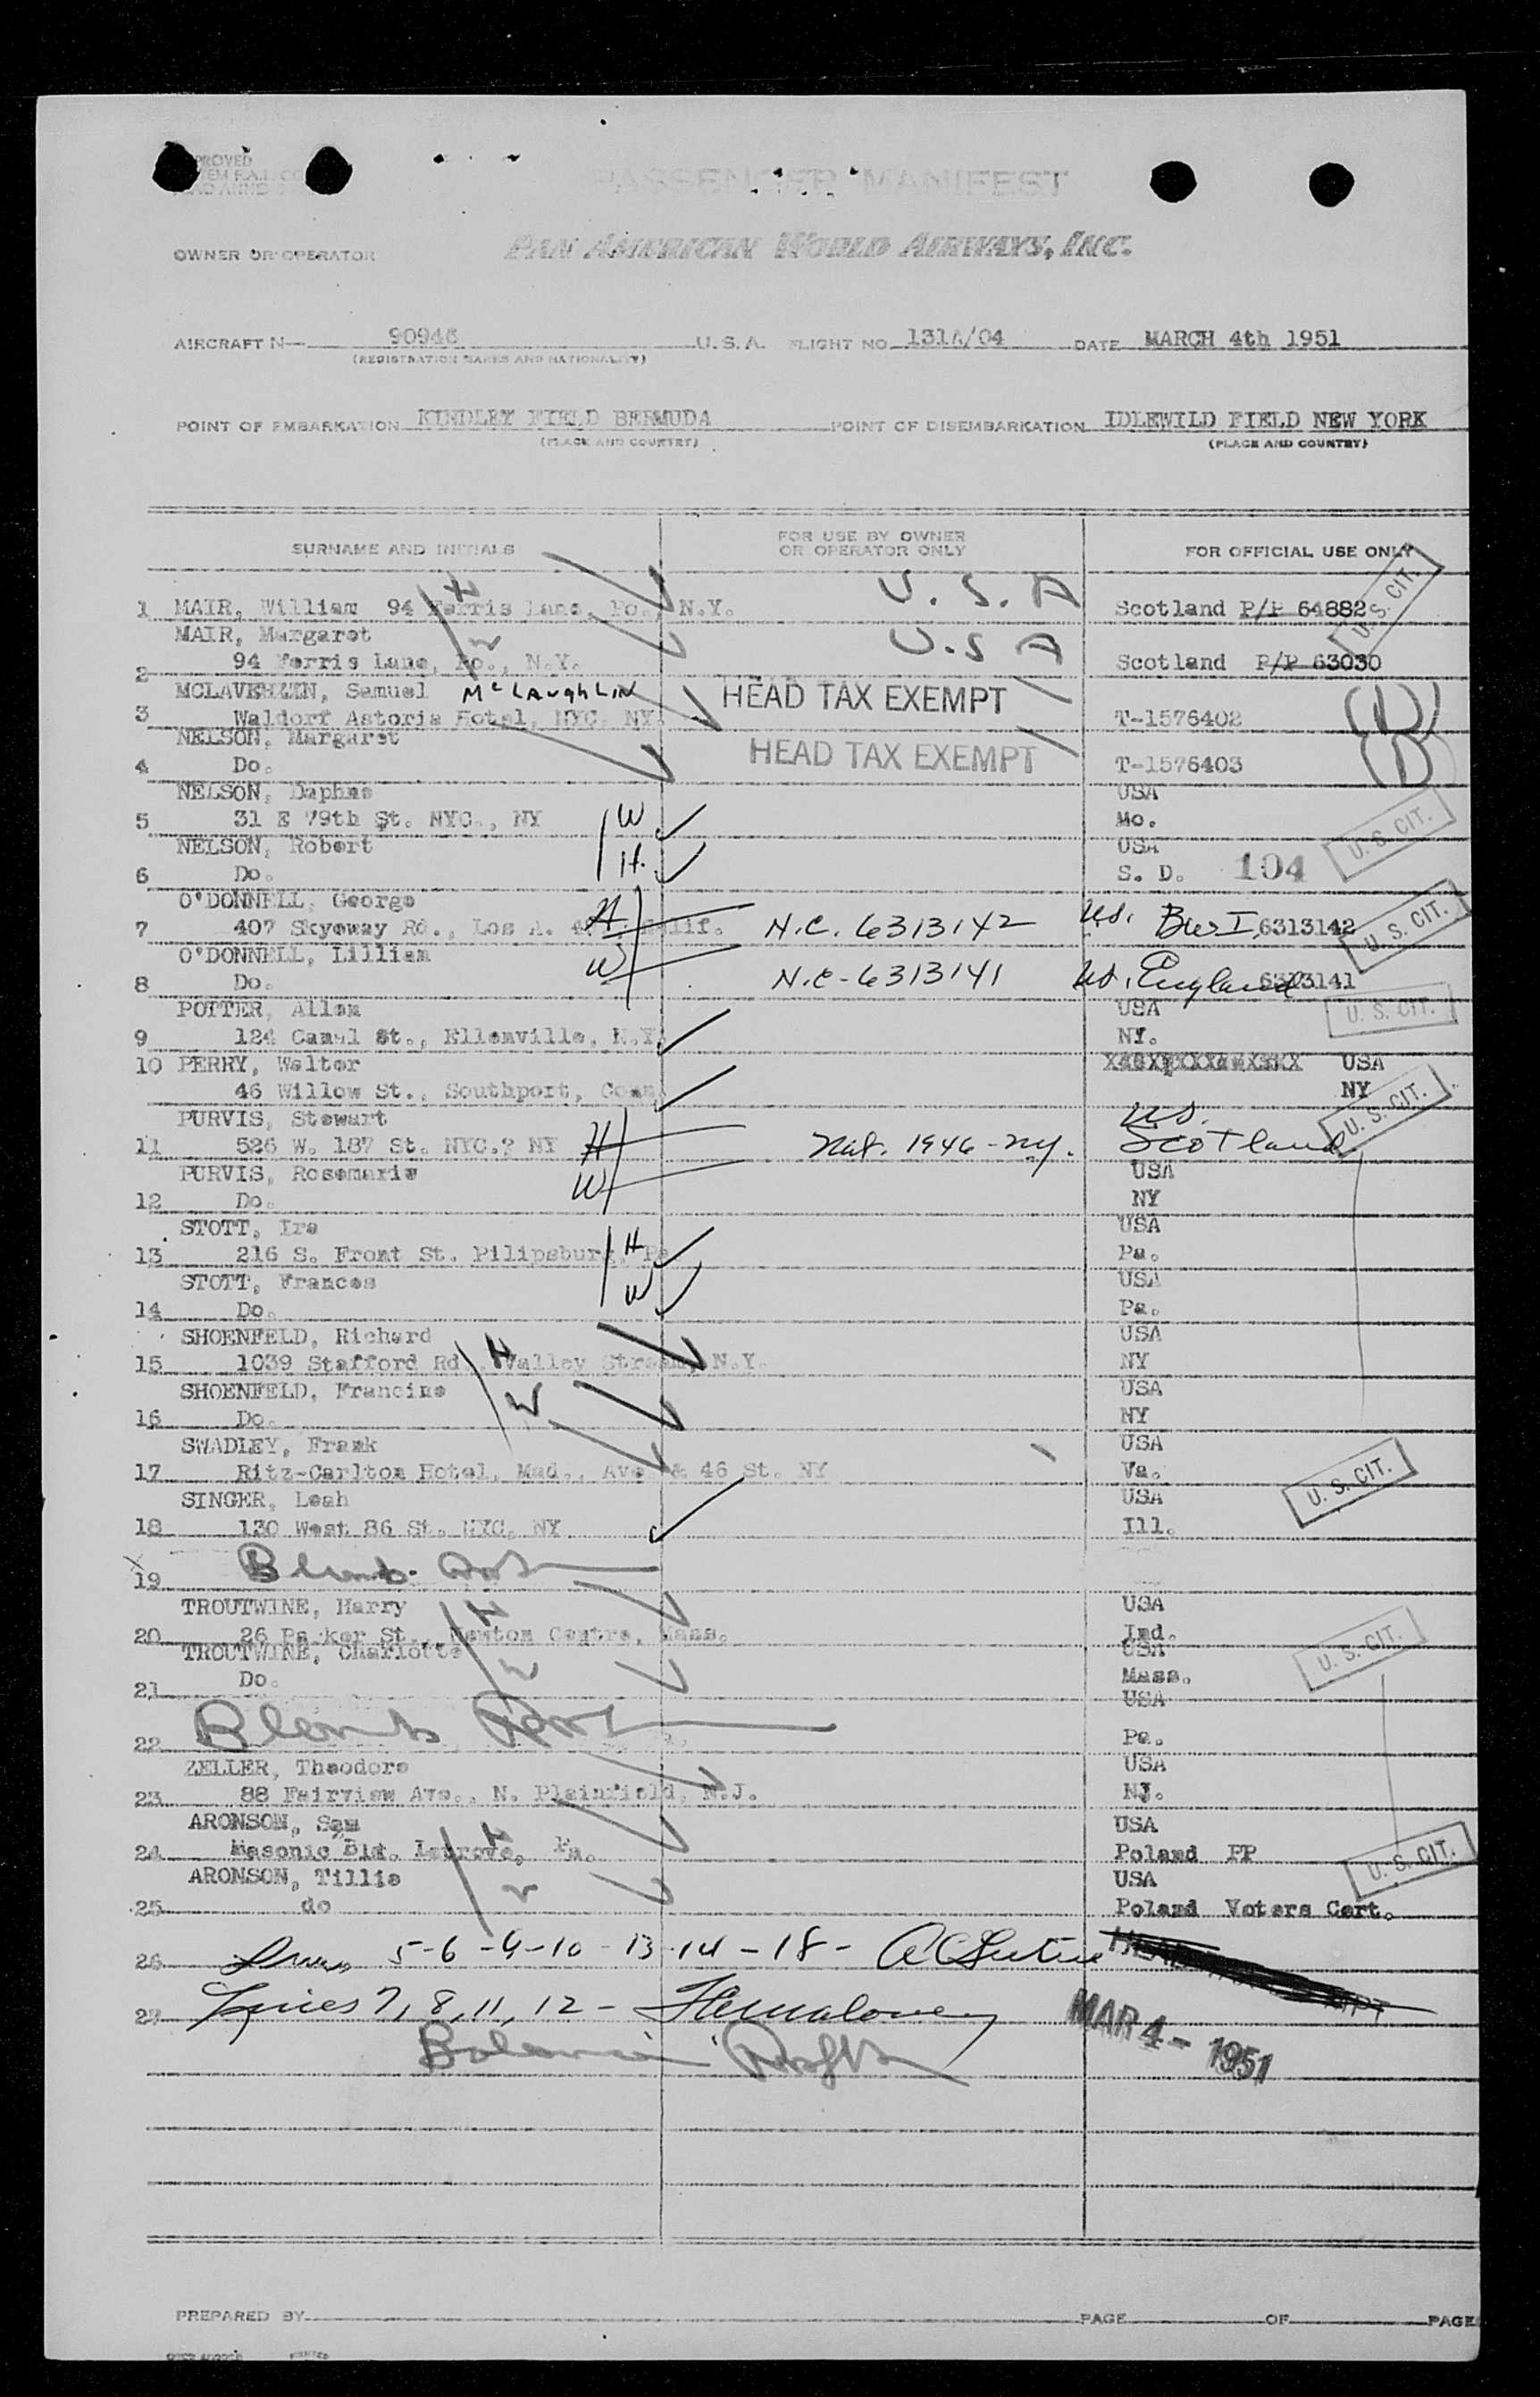 PASSENGER MANIFEST
OWNER OR OPERATOR PAN AMERICAN WORLD AIRWAYS, INC.
AIRCRAFT N— 90946 U.S.A. FLIGHT NO. 131A/04 DATE MARCH 4th 1951
(REGISTRATION MARKS AND NATIONALITY)
POINT OF EMBARKATION KINDLEY FIELD BERMUDA POINT OF DISEMBARKATION IDLEWILD FIELD NEW YORK
(PLACE AND COUNTRY) (PLACE AND COUNTRY)
SURNAME AND INITIALS FOR USE BY OWNER OR OPERATOR ONLY FOR OFFICIAL USE ONLY
1 MAIR, William 94 Ferris Lane, Po., N.Y. H U.S.A Scotland P/P 64882 U.S. CIT.
MAIR, Margaret W U.S A
2 94 Ferris Lane, Po., N.Y. Scotland P/P 63030
Samuel McLAughLIN HEAD TAX EXEMPT
3 Waldorf Astoria Hotel, NYC, NY. T-1576402
NELSON, Margaret HEAD TAX EXEMPT
4 Do. T-1576403
NELSON, Daphne USA
5 31 E 79th St. NYC., NY W Mo.
NELSON, Robert USA U.S. CIT.
6 Do. H. S. D. 104
O'DONNELL, George
7 407 Skyeway Rd., Los A. Calif. H N.C. 6313142 US. 6313142 U.S. CIT.
O'DONNELL, Lilliam
8 Do. W N.C-6313141 US. England 6313141
POTTER, Allen USA U.S. CIT.
9 124 Canal St., Ellenville, N.Y. NY.
10 PERRY, Walter USA
46 Willow St., Southport, Conn. NY U.S. CIT.
PURVIS, Stewart US.
11 526 W. 187 St. NYC.? NY H Nat. 1946 - NY. Scotland
PURVIS, Rosemarie W USA
12 Do. NY
STOTT, Ira USA
13 216 S. Front St. Pilipsburg, Pa H Pa.
STOTT, Frances W USA
14 Do. Pa.
SHOENFELD, Richard USA
15 1039 Stafford Rd., Valley Stream, N.Y. H NY
SHOENFELD, Francine USA
16 Do. W NY
SWADLEY, Frank USA
17 Ritz-Carlton Hotel, Mad., Ave & 46 St. NY Va. U.S. CIT.
SINGER, Leah USA
18 130 West 86 St. NYC, NY Ill.
19
TROUTWINE, Harry H USA
20 26 Parker St., Newton Centre, Mass. Ind. U.S. CIT.
TROUTWINE, Charlotte W USA
21 Do. Mass.
USA
22 Pa.
ZELLER, Theodore USA
23 88 Fairview Ave., N. Plainfield, N.J. NJ.
ARONSON, Sam USA
24 Masonic Bld. Latrove, Pa. H Poland PP U.S. CIT.
ARONSON, Tillie W USA
25 do Poland Voters Cert.
26 5-6-9-10-13-14-18-
Lines 7, 8, 11, 12 -
MAR 4 - 1951
PREPARED BY PAGE OF PAGE